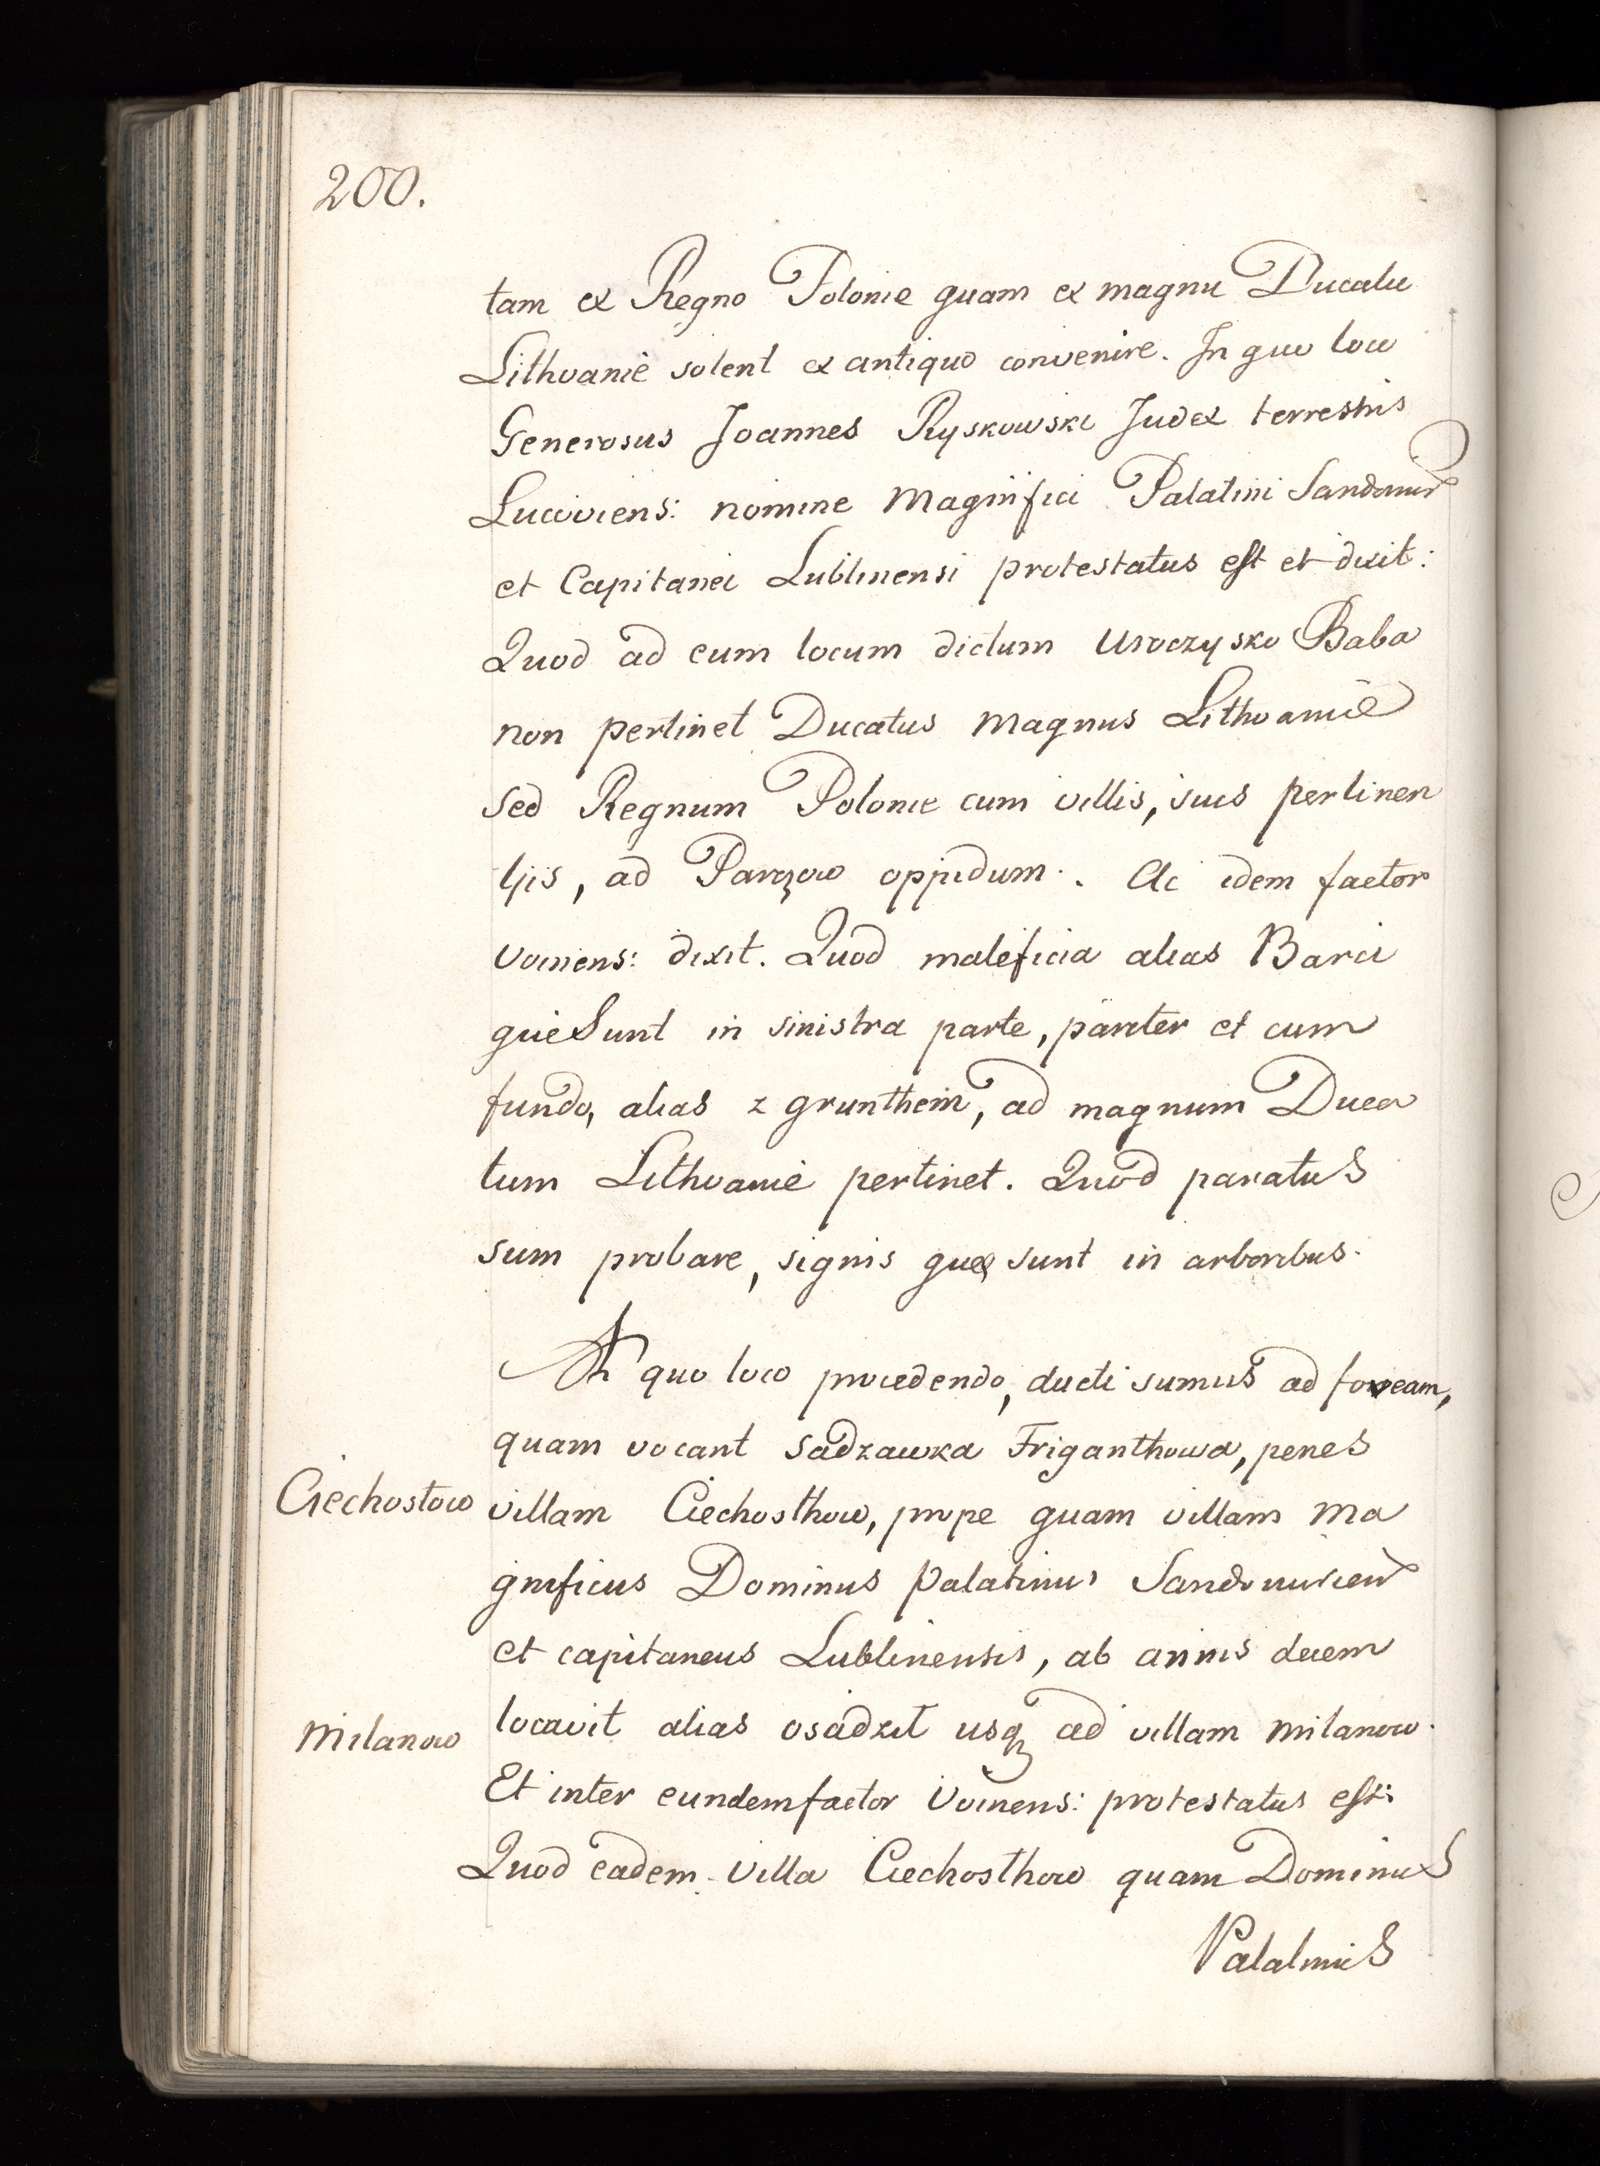 200.
tam ex Regno Polonie quam ex magnu Ducatu
Lithvanie solent ex antiquo convenire. In quo loco
Generosus Joannes Ryskowski Judex terrestris
Lucoviens: nomine Magnifici Palatini Sandomir
et Capitanei Lublinensi protestatus est et dixit:
Quod ad eum locum dictum Uroczysko Baba
non pertinet Ducatus Magnus Lithvanie
sed Regnum Polonie cum villis, suis pertinen
tÿs, ad Parczow oppidum. Ac idem factor
Voinens: dixit. Quod maleficia alias Barci
que Sunt in sinistra parte, pariter et cum
fundo, alias z grunthem, ad magnum Duca
tum Lithvanie pertinet. Quod paratus
sum probare, signis quae sunt in arboribus.
A quo loco procedendo, ducti sumus ad foveam,
quam vocant Sadzawka Friganthowa, penes
Ciechostow
villam Ciechosthow, prope quam villam Ma
gnificus Dominus Palatinus Sandomirien
et capitaneus Lublinensis, ab annis decem
Milanow
locavit alias osadzit usq ad villam Milanow.
Et inter eundem factor Voinens: protestatus est:
Quod eadem villa Ciechosthow quam Dominus
Palatinus